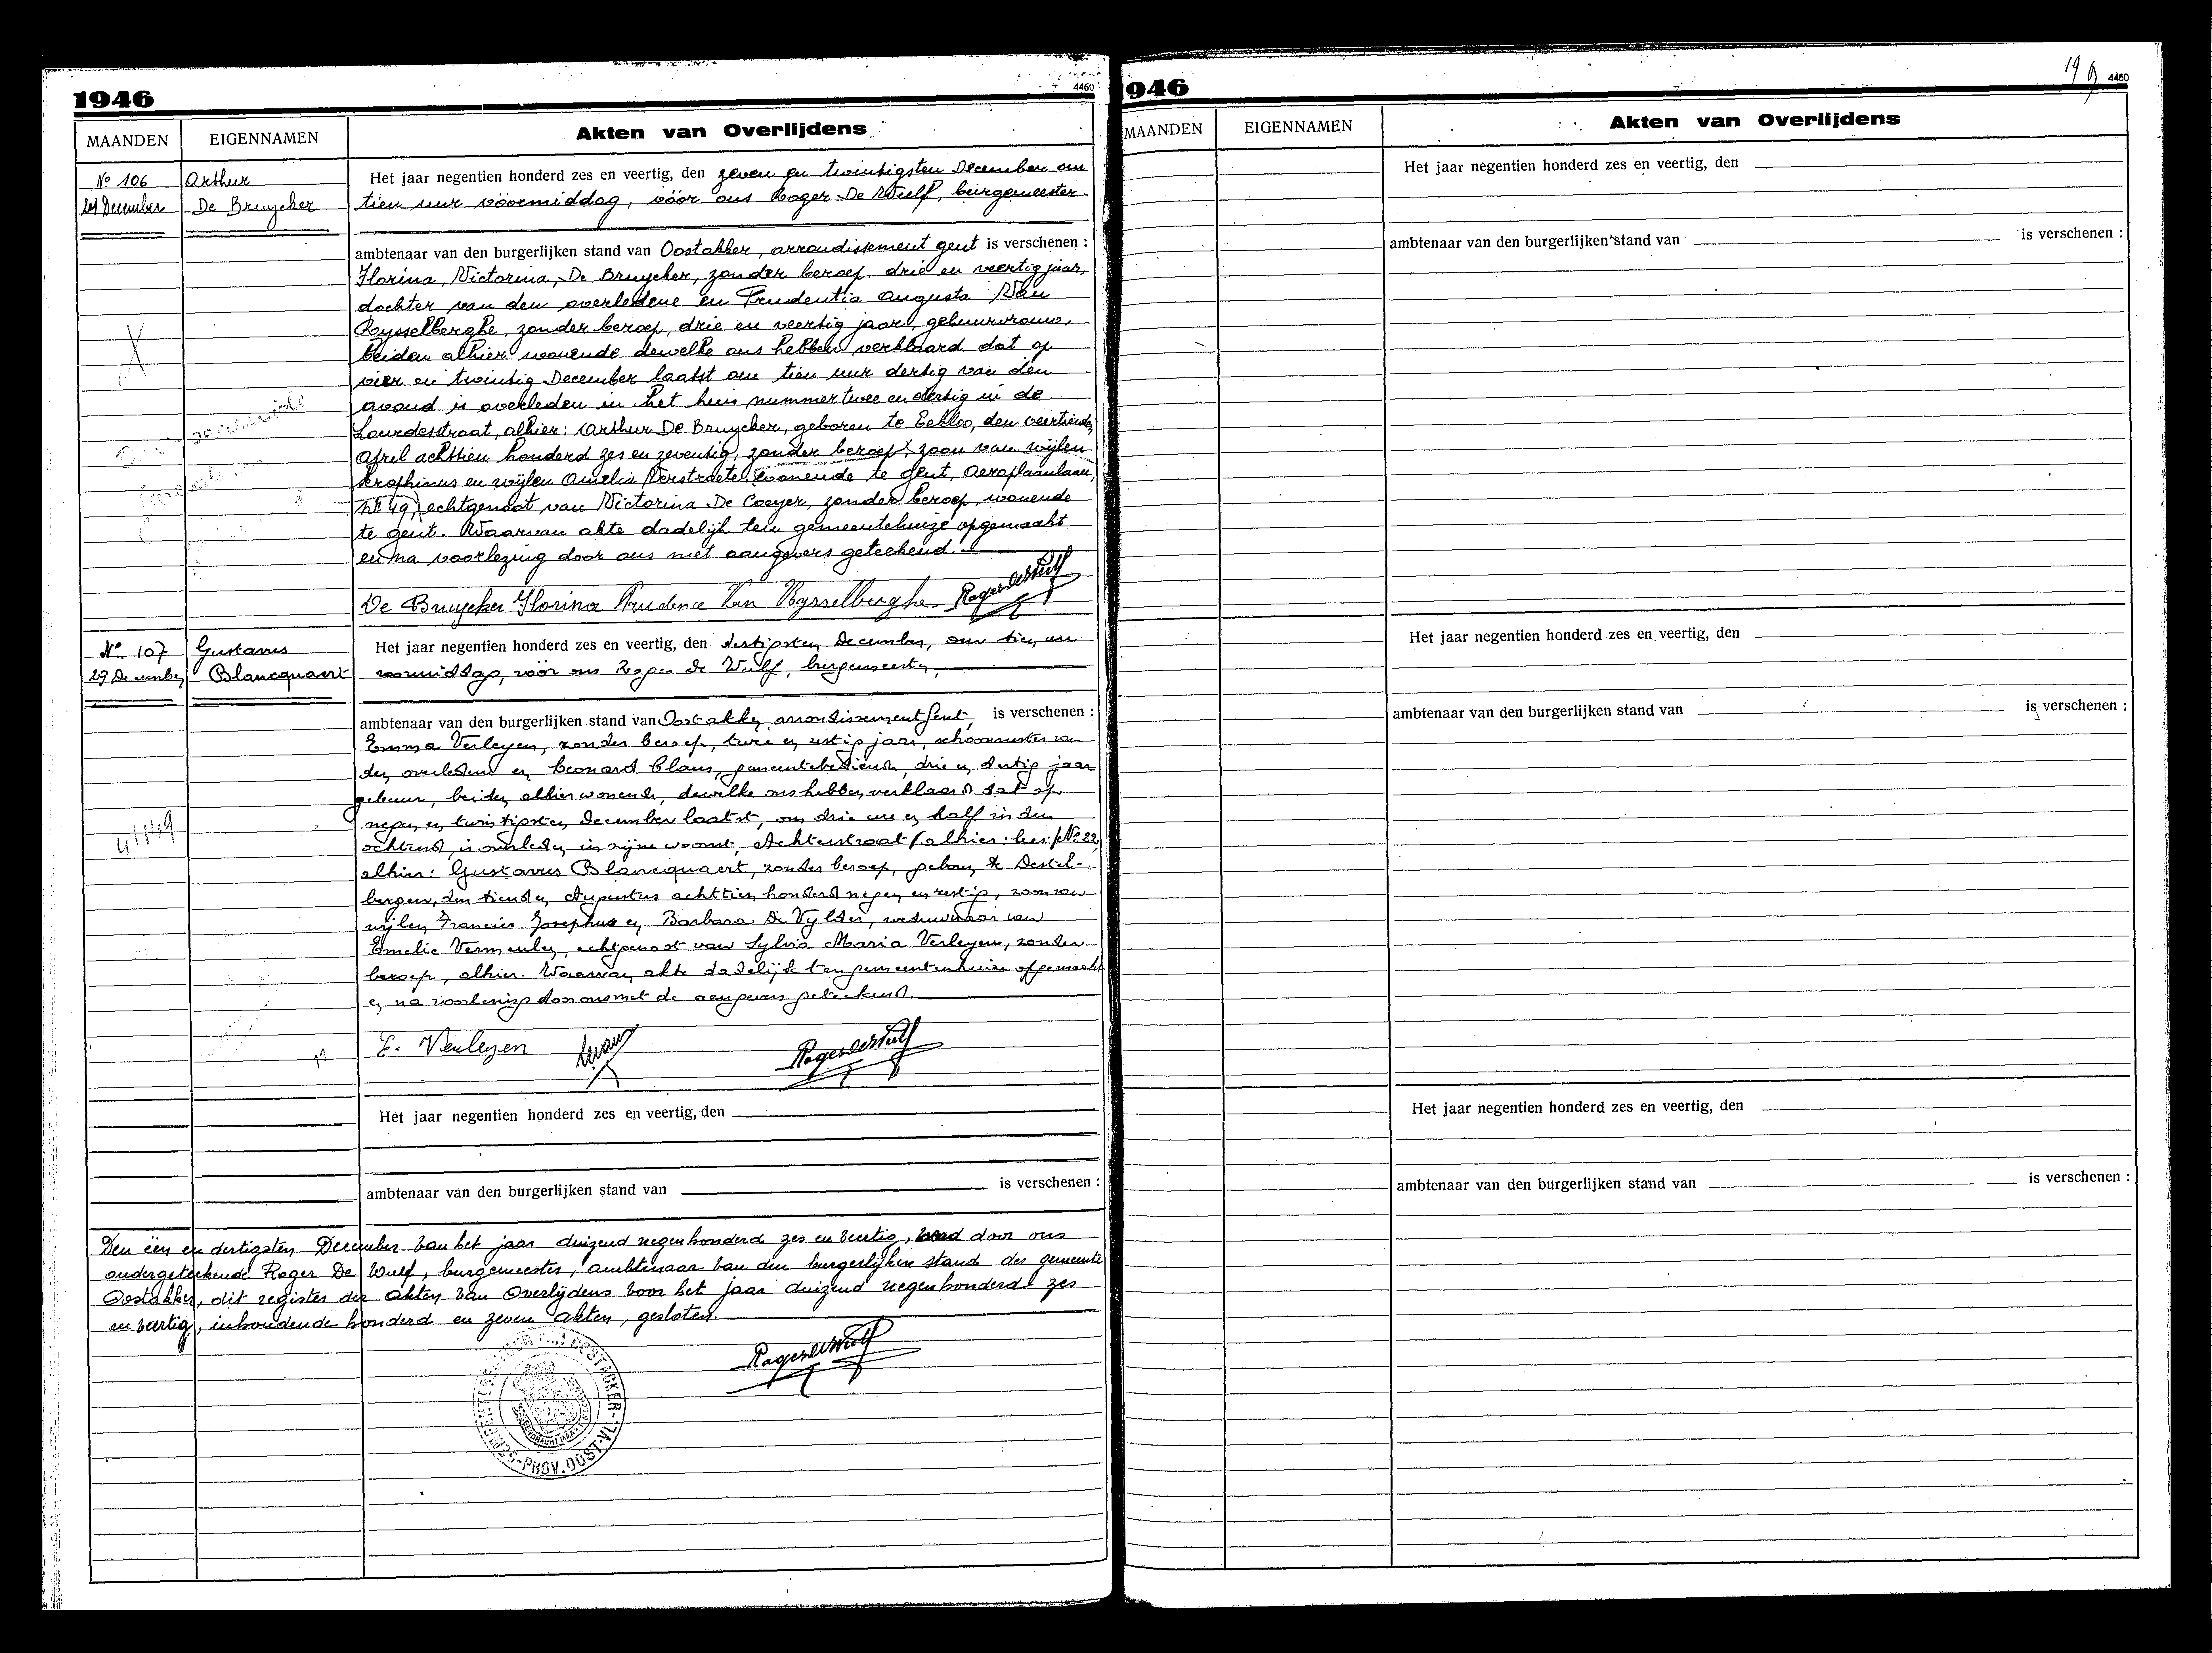 1946
4460
MAANDEN
EIGENNAMEN
Akten van Overlijdens
No 106
24 December
Arthur
De Bruycker
Het jaar negentien honderd zes en veertig, den zeven en twintigsten December om
tien uur vóórmiddag, vóór ons Roger De Wulf, burgemeester
ambtenaar van den burgerlijken stand van Oostakker, arrondissement gent is verschenen :
Florina, Victorina, De Bruycker, zonder beroep, drie en veertig jaar,
dochter van den overledene en Prudentia Augusta Van
Rysselberghe, zonder beroep, drie en veertig jaar, gebuurvrouw,
beiden alhier wonende dewelke ons hebben verklaard dat op
vier en twintig December laatst om tien uur dertig van den
avond is overleden in het huis nummer twee en dertig in de
Lourdesstraat, alhier: Arthur De Bruycker, geboren te Eekloo, den veertienden
April achttien honderd zes en zeventig, zonder beroep, zoon van wijlen
Seraphinus en wijlen Amelia Verstraete, (wonende te gent, Aeroplaanlaan,
Nr 49,) echtgenoot van Victorina De Coeyer, zonder beroep, wonende
te gent. Waarvan akte dadelijk ten gemeentehuize opgemaakt
en na voorlezing door ons met aangevers geteekend.
De Bruycker Florina Prudence Van Rysselberghe Roger De Wulf
No. 107
29 December
Gustavus
Blancquaert
Het jaar negentien honderd zes en veertig, den dertigsten December, om tien uur
voormiddag, vóór ons Roger De Wulf, burgemeester,
ambtenaar van den burgerlijken stand van Oostakker, arrondissement Gent, is verschenen :
Emma Verleyen, zonder beroep, twee en zestig jaar, schoonzuster van
den overledene en Leonard Claus, gemeentebediende, drie en dertig jaar
gebuur, beiden alhier wonende, dewelke ons hebben verklaard dat op
negen en twintigsten December laatst, om drie uur en half in den
ochtend, is overleden in zijne woonst, Achterstraat (alhier: lees: No. 22,
alhier: Gustavus Blancquaert, zonder beroep, geboren te Destel-
bergen, den tienden Augustus achttien honderd negen en zestig, zoon van
wijlen Francies Josephus en Barbara De Vylder, weduwnaar van
Emelie Vermeulen, echtgenoot van Sylvia Maria Verleyen, zonder
beroep, alhier. Waarvan akte dadelijk ten gemeentenhuize opgemaakt
en na voorlezing door ons met de aangevers geteekend.
E. Verleyen
Roger De Wulf
Het jaar negentien honderd zes en veertig, den
ambtenaar van den burgerlijken stand van is verschenen :
Den één en dertigsten December van het jaar duizend negenhonderd zes en veertig, werd door ons
ondergeteekende Roger De Wulf, burgemeester, ambtenaar van den burgerlijken stand der gemeente
Oostakker, dit register der akten van Overlijdens voor het jaar duizend negenhonderd zes
en veertig, inhoudende honderd en zeven akten, gesloten.
Roger De Wulf
946
199
4460
MAANDEN
EIGENNAMEN
Akten van Overlijdens
Het jaar negentien honderd zes en veertig, den
ambtenaar van den burgerlijken stand van is verschenen :
Het jaar negentien honderd zes en veertig, den
ambtenaar van den burgerlijken stand van is verschenen :
Het jaar negentien honderd zes en veertig, den
ambtenaar van den burgerlijken stand van is verschenen :